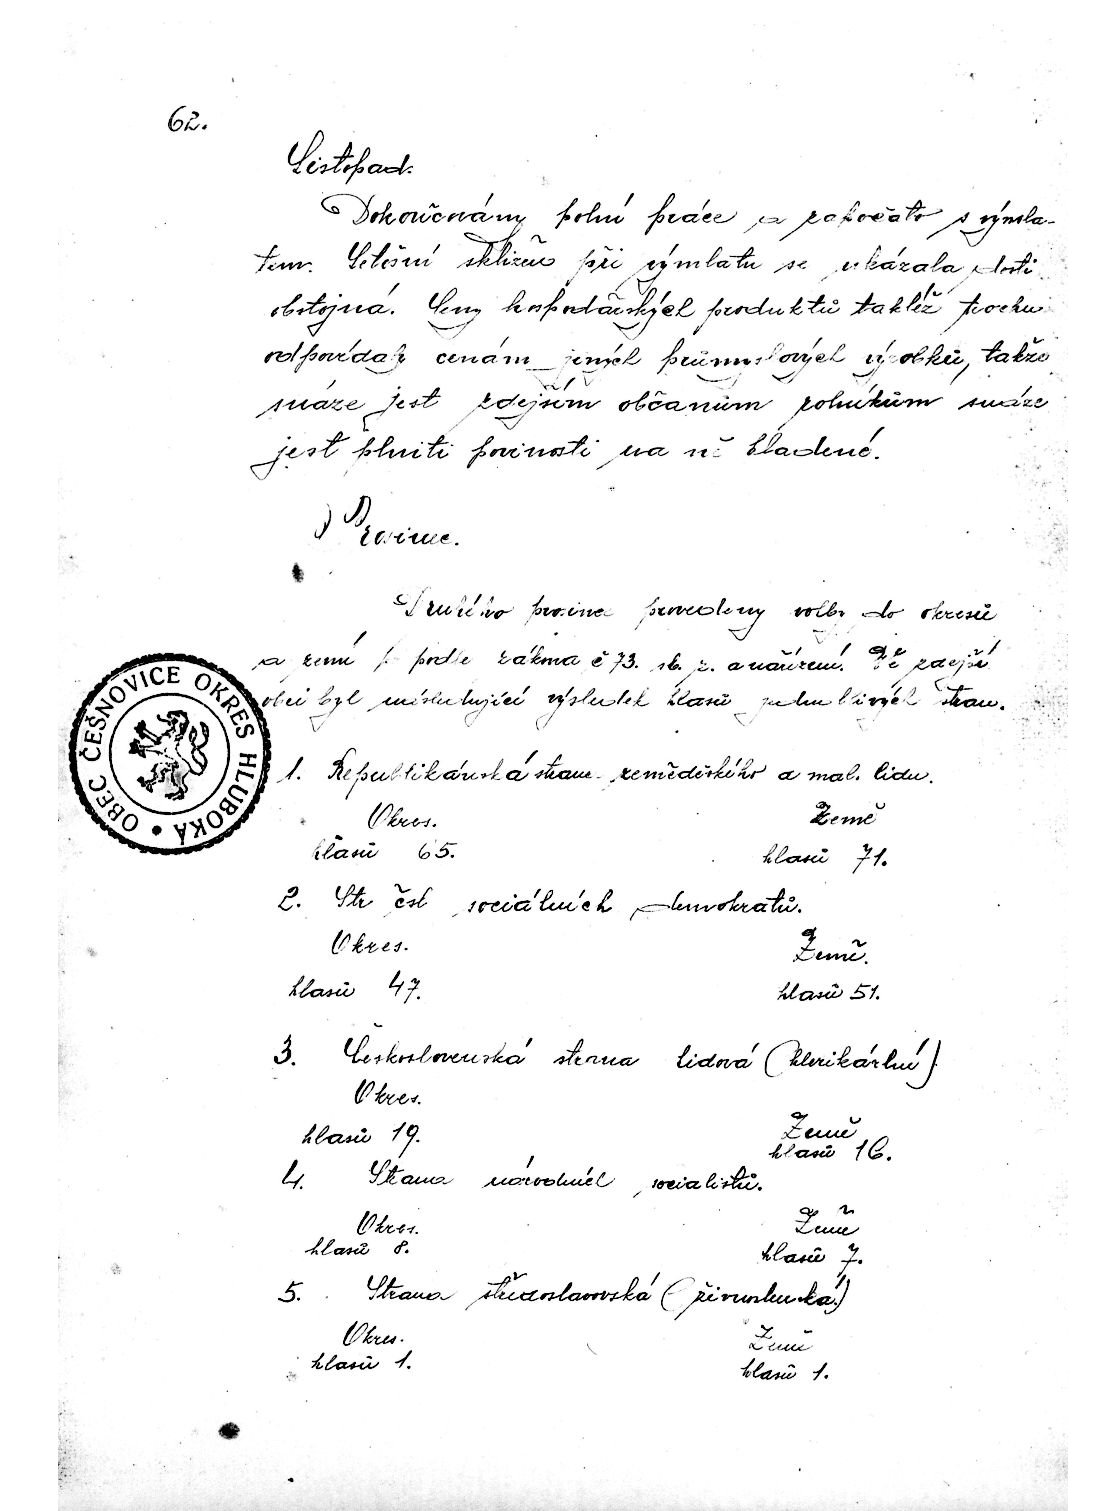 62.
Listopad.
Dokončovány polní práce a započato s výmla-
tem. Letošní sklizeň při výmlatu se ukázala dosti
obstojná. Ceny hospodářských produktů taktéž trochu
odpovídaly cenám jiných průmyslových výrobků, takže
snáze jest zdejším občanům rolníkům snáze
jest plniti povinosti na ně kladené.
Prosinec.
Druhého prosince provedeny volby do okresů
a zemí podle zákona č 73. sb. z. a nařízení. Ve zdejší
obci byl následující výsledek hlasů jednotlivých stran.
OBEC ČEŠNOVICE OKRES HLUBOKÁ
1. Republikánská strana zemědělského a mal. lidu.
Okres. Země
hlasů 65. hlasů 71.
2. Str čsl sociálních demokratů.
Okres. Země.
hlasů 47. hlasů 51.
3. Československá strana lidová (klerikární)
Okres.
hlasů 19. Země
hlasů 16.
4. Strana národních socialistů.
Okres. Země
hlasů 8. hlasů 7.
5. Strana středoslavovská (živnostenská)
Okres. Země
hlasů 1. hlasů 1.